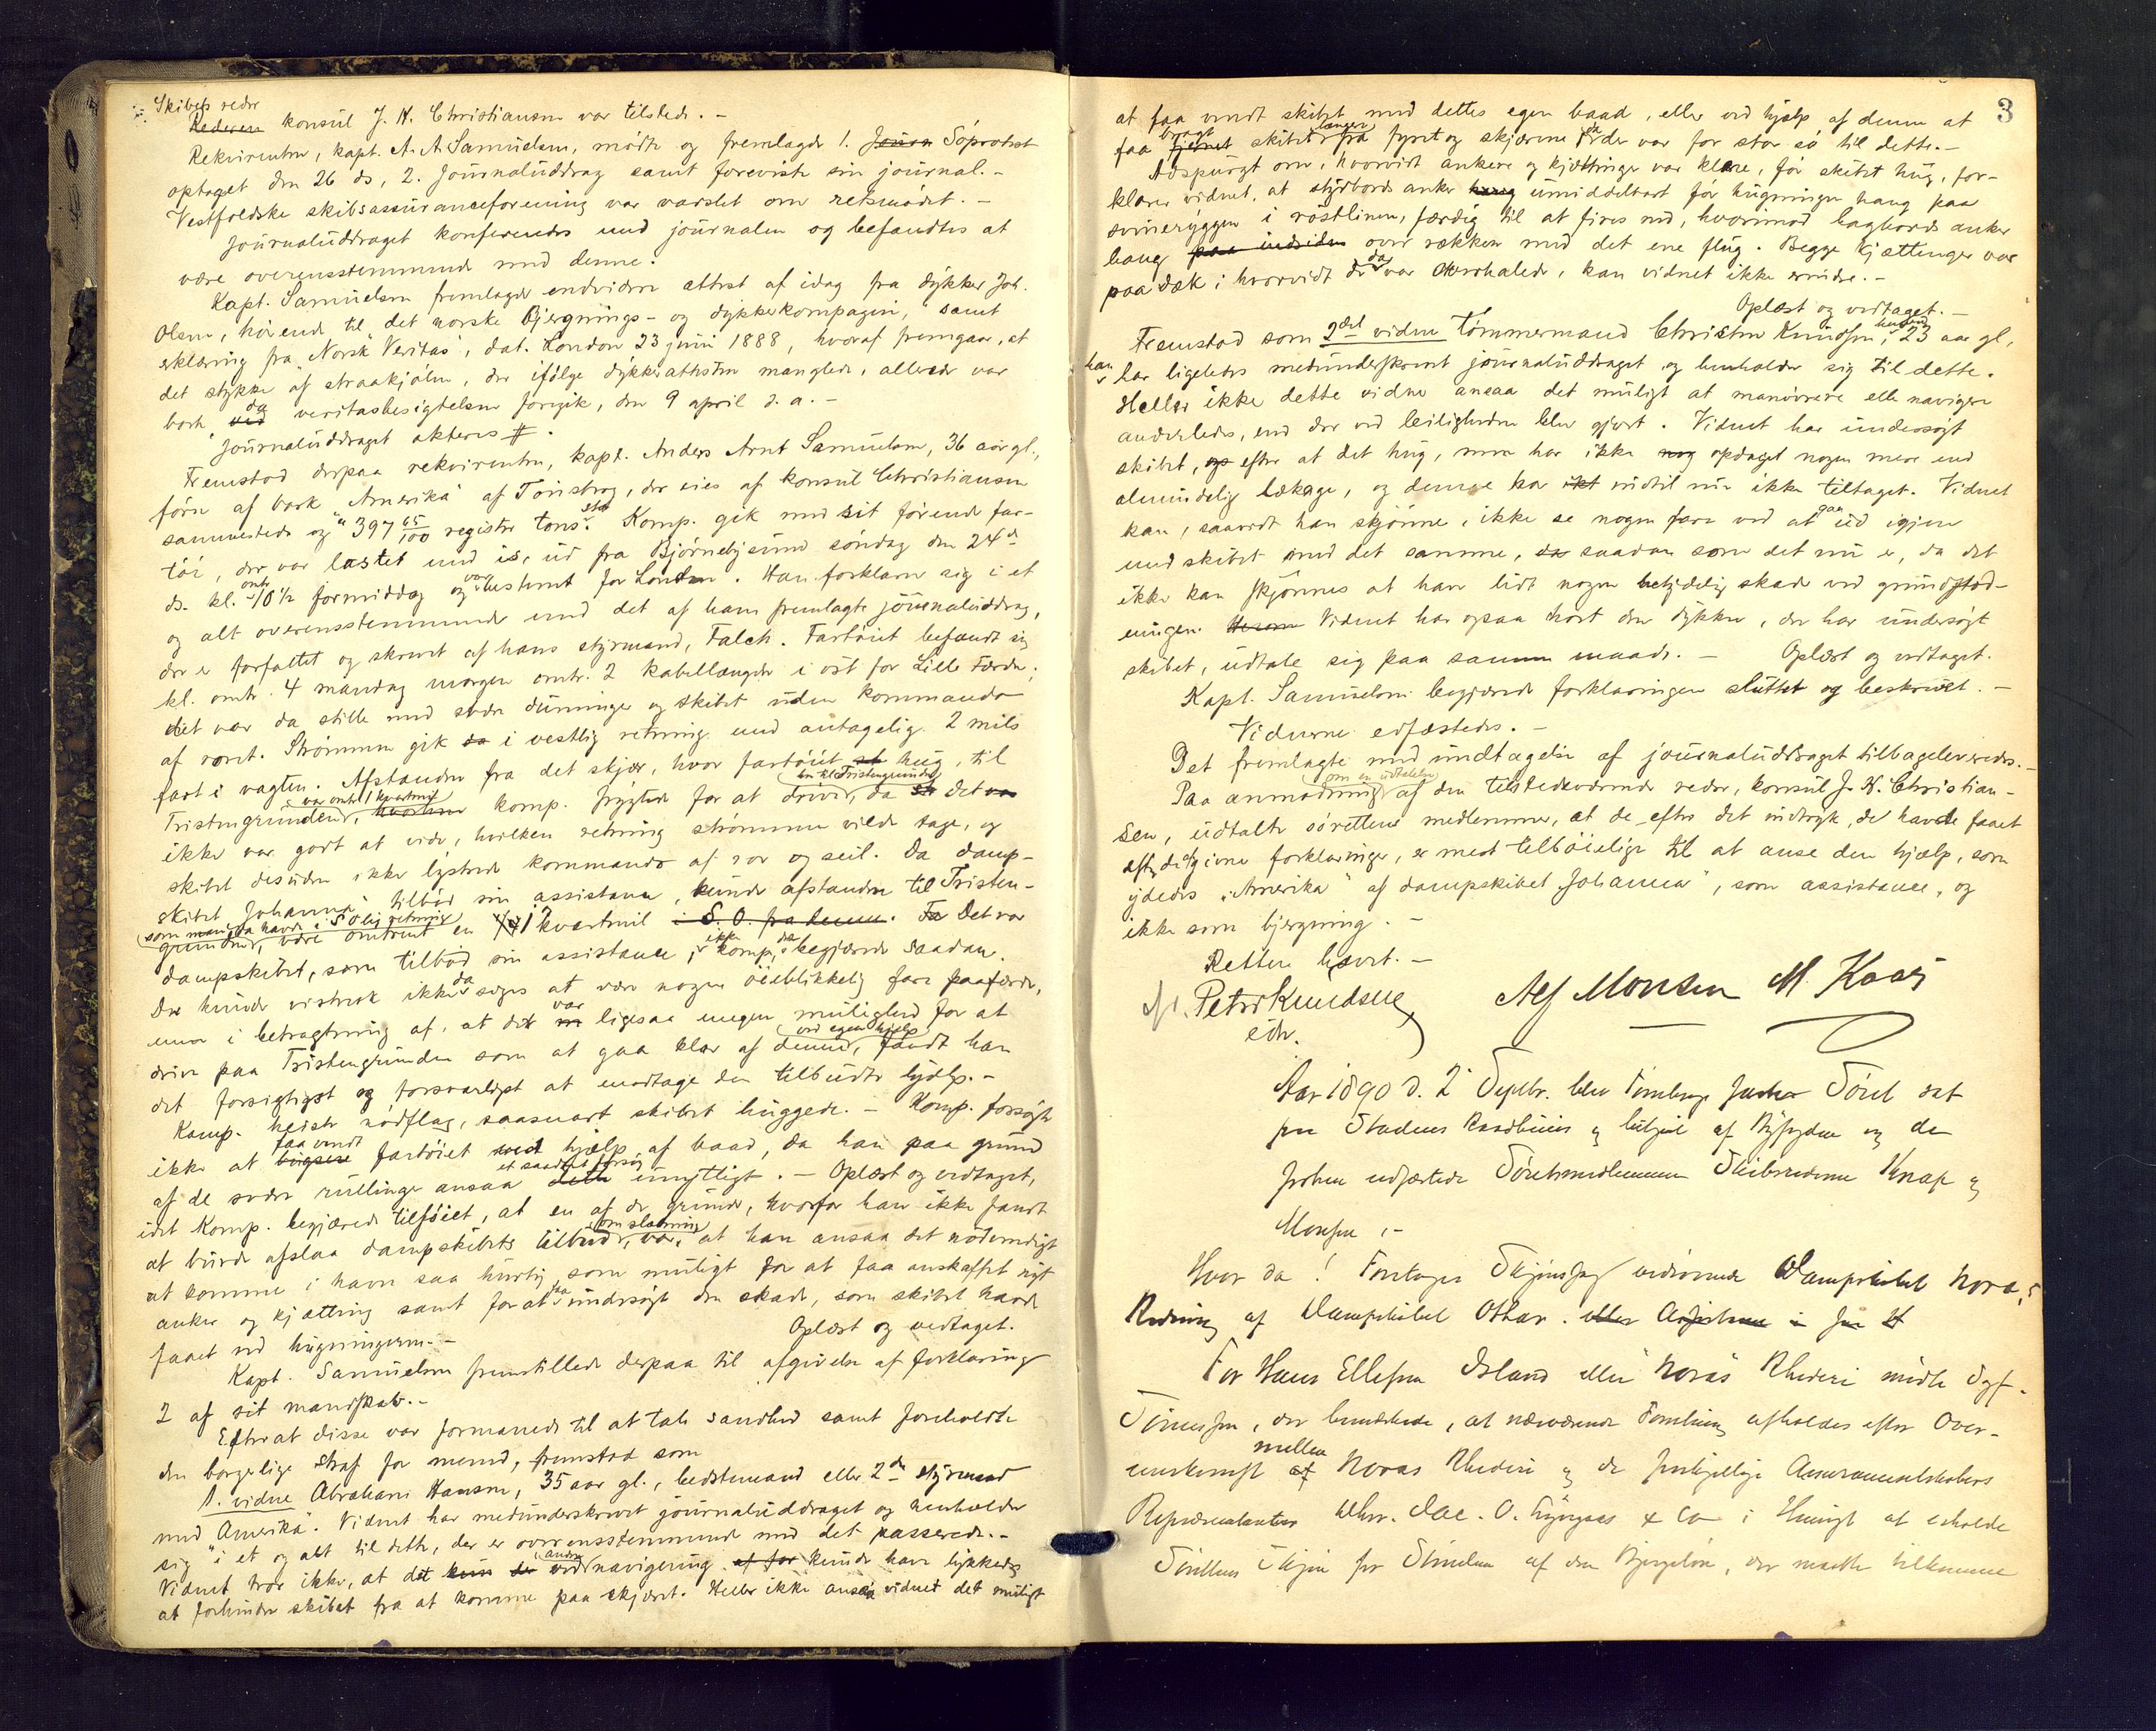 Skibets reder
Rederen konsul J. H. Christiansen var tilstede. -
Rekvirenten, kapt. A. A. Samuelsen, mødte og fremlagde 1. Søprotest
optaget den 26 ds, 2. Journaluddrag samt foreviste sin journal. -
Vestfoldske skibsassuranceforening var varslet om retsmødet. -
Journaluddraget konfereredes med journalen og befandtes at
være overensstemmende med denne.
Kapt. Samuelsen fremlagde endvidere attest af idag fra dykker Joh.
Olsen, hørende til "det norske Bjergnings- og dykkerkompagni," samt
erklæring fra "Norsk Veritas", dat. London 23 juni 1888, hvoraf fremgaar, at
det stykke af straakjølen, der ifølge dykkerattesten manglede, allerede var
borte, ved da veritasbesigtelsen foregik, den 9 april d. a. -
Journaluddraget akteres #.
Fremstod derpaa rekvirenten, kapt. Anders Arnt Samuelsen, 36 aar gl.,
fører af bark "Amerika" af Tønsberg, der eies af konsul Christiansen
sammesteds og 397 65/100 register tons stor. Komp. gik med sit førende far-
tøi, der var lastet med is, ud fra Bjørnebysund søndag den 24de
ds. kl. omtr 10½ formiddag og var bestemt for London. Han forklarer sig i et
og alt overensstemmende med det af ham fremlagte journaluddrag,
der er forfattet og skrevet af hans styrmand, Falck. Fartøiet befandt sig
kl. omtr. 4 mandag morgen omtr. 2 kabellængder i øst for Lille Færder;
det var da stille med svære dunninger og skibet uden kommando
af roret. Strømmen gik da i vestlig retning med antagelig 2 mils
fart i vagten. Afstanden fra det skjær, hvor fartøiet hug, til
Tristengrunden, var omtr. 1 kvartmil komp. frygtede for at drive in kl Tristengrunden, da det var
ikke var godt at vide, hvilken retning strømmen vilde tage, og
skibet desuden ikke lystrede kommando af ror og seil. Da damp-
skibet "Johanna" tilbød sin assistance, kunde afstanden til Tristen-
grunden, som man da havde i S Olig retning, være omtrent en 1 kvartmil i S. O. fra denne. Det var
dampskibet, som tilbød sin assistance, ikke komp, der begjærede saadan.
Der kunde vistnok ikke da siges at være nogen øieblikkelig fare paafærde,
men i betragtning af, at det var ligesaa megen mulighed for at
drive paa Tristengrunden som at gaa klar af denne ved egen hjælp, fandt han
det forsigtigst og forsvarligst at modtage den tilbudte hjælp. -
Komp. heiste nødflag, saasnart skibet huggede. - Komp. forsøgte
ikke at bugsere faa vendt fartøiet ved hjælp af baad, da han paa grund
af de svære rullinger ansaa dette et saadant forsøg unyttigt. - Oplæst og vedtaget,
idet Komp. begjærede tilføiet, at en af de grunde, hvorfor han ikke fandt
at burde afslaa dampskibets tilbud om slæbning, var, at han ansaa det nødvendigt
at komme i havn saa hurtig som muligt for at faa anskaffet nyt
anker og kjætting samt for at faa undersøgt den skade, som skibet havde
faaet ved hugningerne. - Oplæst og vedtaget.
Kapt. Samuelsen fremstillede derpaa til afgivelse af forklaring
2 af sit mandskab. -
Efterat disse var formanede til at tale sandhed samt foreholdte
den borgerlige straf for mened, fremstod som
1. vidne Abraham Hansen, 35 aar gl., bedstemand eller 2den styrmand
med "Amerika". Vidnet har medunderskrevet journaluddraget og henholder
sig i et og alt til dette, der er overensstemmende med det passerede. -
Vidnet tror ikke, at det kun ved andre navigering af for kunde have lykkedes
at forhindre skibet fra at komme paa skjæret. Heller ikke ansaa vidnet det muligt
3
at faa vendt skibet med dettes egen baad, eller ved hjælp af denne at
faa fjernet bragt skibet længer fra fyret og skjærene, da der var for stor sø til dette. -
Adspurgt om, hvorvidt ankere og kjættinger var klare, før skibet hug, for-
klarer vidnet, at styrbords anker hang umiddelbart før hugningen hang paa
svineryggen i røstlinen, færdig til at fires ned, hvorimod bagbords anker
hang paa indsiden over rækken med det ene flug. Begge kjættinger var
paa dæk; hvorvidt de da var overhalede, kan vidnet ikke erindre. -
Oplæst og vedtaget. -
Fremstod som 2det vidne tømmermand Christen Knudsen, 23 aar gl,
han har ligeledes medunderskrevet journaluddraget og henholder sig til dette.
Heller ikke dette vidne ansaa det muligt at manøvrere eller navigere
anderledes, end der ved leiligheden blev gjort. Vidnet har undersøgt
skibet, efter at det hug, men har ikke opdaget nogen mere end
almindelig lækage, og denne har indtil nu ikke tiltaget. Vidnet
kan, saavidt han skjønner, ikke se nogen fare ved at gaa ud igjen
med skibet med det samme, saadan som det nu er, da det
ikke kan skjønnes at have lidt nogen betydelig skade ved grundstød-
ningen. Vidnet har ogsaa hørt den dykker, der har undersøgt
skibet, udtale sig paa samme maade. - Oplæst og vedtaget.
Kapt. Samuelsen begjærede forklaringen sluttet og beskrevet. -
Vidnerne edfæstedes. -
Det fremlagte med undtagelse af journaluddraget tilbageleveredes. -
Paa anmodning om en udtalelse af den tilstedeværende reder, konsul J. H. Christian-
sen, udtalte sørettens medlemmer, at de efter det indtryk, de havde faaet
efter de afgivne forklaringer, er mest tilbøielige til at anse den hjælp, som
ydedes "Amerika" af dampskibet "Johanna", som assistance, og
ikke som bjergning. -
Retten hævet. -
Petter Knudsen Alf Monsen M. Kaas
edv.
Aar 1890 d. 2 Septbr. blev Tønsberg Søret sat
paa Stadens Raadhuus og betjent af Byfogden og de
forhen udførte Søretsmedlemmer Skibsrederne Knap og
Monsen. -
Hvor da! Foretoges Skjøns vedrørende Dampskibet Nora's
Redning af Dampskibet Othar.
For Hans Ellefsen Island eller Noras Rhederi mødte
Tønnesen, der bemærkede, at nærværende Forretning afholdes efter Over-
enskomst af mellem Noras Rhederi og de forskjellige Assuranceselskabers
Repræsentanter i Henseende at erholde
Sørettens Skjøn for Størrelsen af den Bjergeløn, der maatte tilkomme